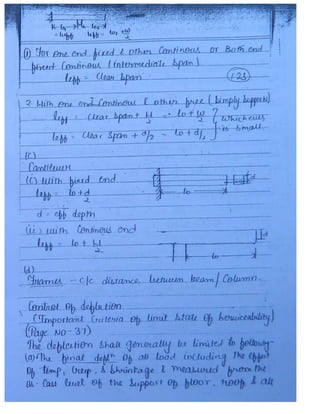 leff = lo + w/2
① For one end fixed & other Continous or Both end
fixed Continous (Intermediate Span)
leff = Clear Span
123
2. With one end Continous & other free (Simply Supported)
leff = Clear Span + w/2 = lo + w/2 } Whichever
leff = Clear Span + d/2 = lo + d/2 } is Small
(c)
Cantilever
(i) With fixed end
leff = lo + d/2
lo
d
d = eff depth
(ii) With Continous end
leff = lo + w/2
d
lo
(d)
Frames - c/c distance between beam/Column.
Control Of deflection
(Important Criteria of limit State of Serviceability)
(Page NO - 37)
The deflection Shall generally be limited to following-
(a) The final of all load including the effect
of temp, Creep, & Shrinkage & measured from the
as-Cast level of the Support of floor, roof & all